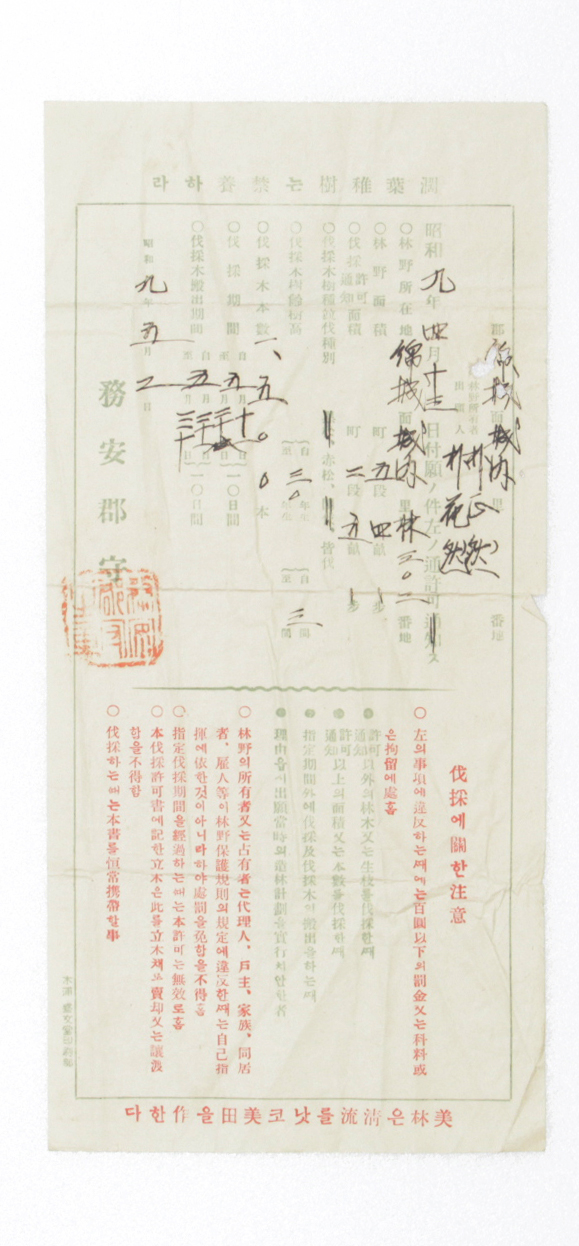 濶葉稚樹는禁養하라
郡 綿城面 城內里 番地
林野所有者 朴正然
出願人 朴花然
昭和九年四月十三日付願ノ件左ノ通許可通知ス
○林野所在地 綿城面城內里林三〇二番地
○林野面積 町五段四畝 步
○伐採許可通知面積 町二段五畝 步
○伐採木樹種竝伐種別 赤松、 皆伐
○伐採木樹齡樹高 自 年生 至三〇年生 自 間 至三間
○伐採木本數 一、五〇〇本
○伐採期間 自五月 日 至五月 日 一〇日間
○伐採木搬出期間 自五月 日 至五月三十日 一〇日間
昭和九年五月二日
務安郡守
伐採에關한注意
○左의事項에違反하는때에는百圓以下의罰金又는科料或
은拘留에處홈
●許可通知以外의林木又는生枝를伐採한때
●許可通知以上의面積又는本數를伐採한때
●指定期間外에伐採及伐採木의搬出을하는때
●理由읍시出願當時의造林計劃을實行치안한者
○林野의所有者又는占有者는代理人、戶主、家族、同居
者、雇人等이林野保護規則의規定에違反한때는自己指
揮에依한것이아니라하야處罰을免함을不得홈
○指定伐採期間을經過하는때는本許可는無效로홈
○本伐採許可書에記한立木은此를立木채로賣却又는讓渡
함을不得함
○伐採하는때는本書를恒常携帶할事
美林은淸流를낫코美田을作한다